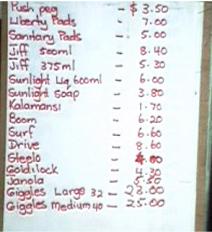 Push peg - $3.50
Liberty Pads - 7.00
Sanitary Pads - 5.00
Jiff 500ml - 8.40
Jiff 375ml - 5.30
Sunlight Liq 600ml - 6.00
Sunlight Soap - 3.80
Kalamansi - 1.70
Boom - 6.20
Surf - 6.60
Drive - 8.60
Steelo -
Goldilock - 4.30
Janola - 5.50
Giggles Large 32 - 23.00
Giggles Medium 40 - 25.00